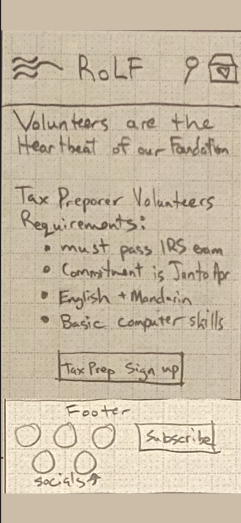 ROLF
Volunteers are the
Heartbeat of our Foundation
Tax Preparer Volunteers
Requirements:
• must pass IRS exam
• Commitment is Jan to Apr
• English + Mandarin
• Basic computer skills
Tax Prep Sign up
Footer
Subscribe
socials